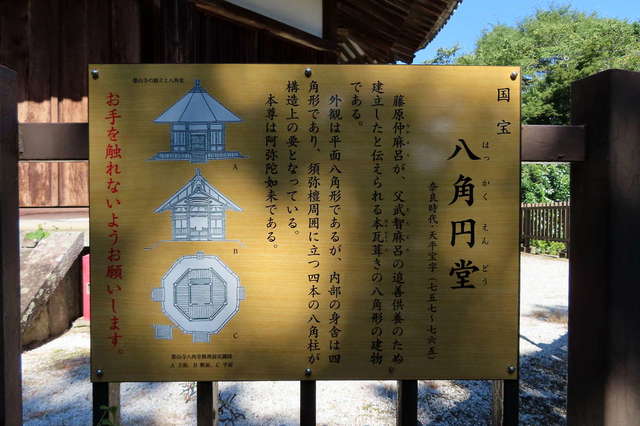 国宝
八角円堂
はっかくえんどう
奈良時代・天平宝字(七五七〜七六五)
藤原仲麻呂が、父武智麻呂の追善供養のため
建立したと伝えられる本瓦葺きの八角形の建物
である。
外観は平面八角形であるが、内部の身舎は四
角形であり、須弥壇周囲に立つ四本の八角柱が
構造上の要となっている。
本尊は阿弥陀如来である。
A
B
C
お手を触れないようお願いします。